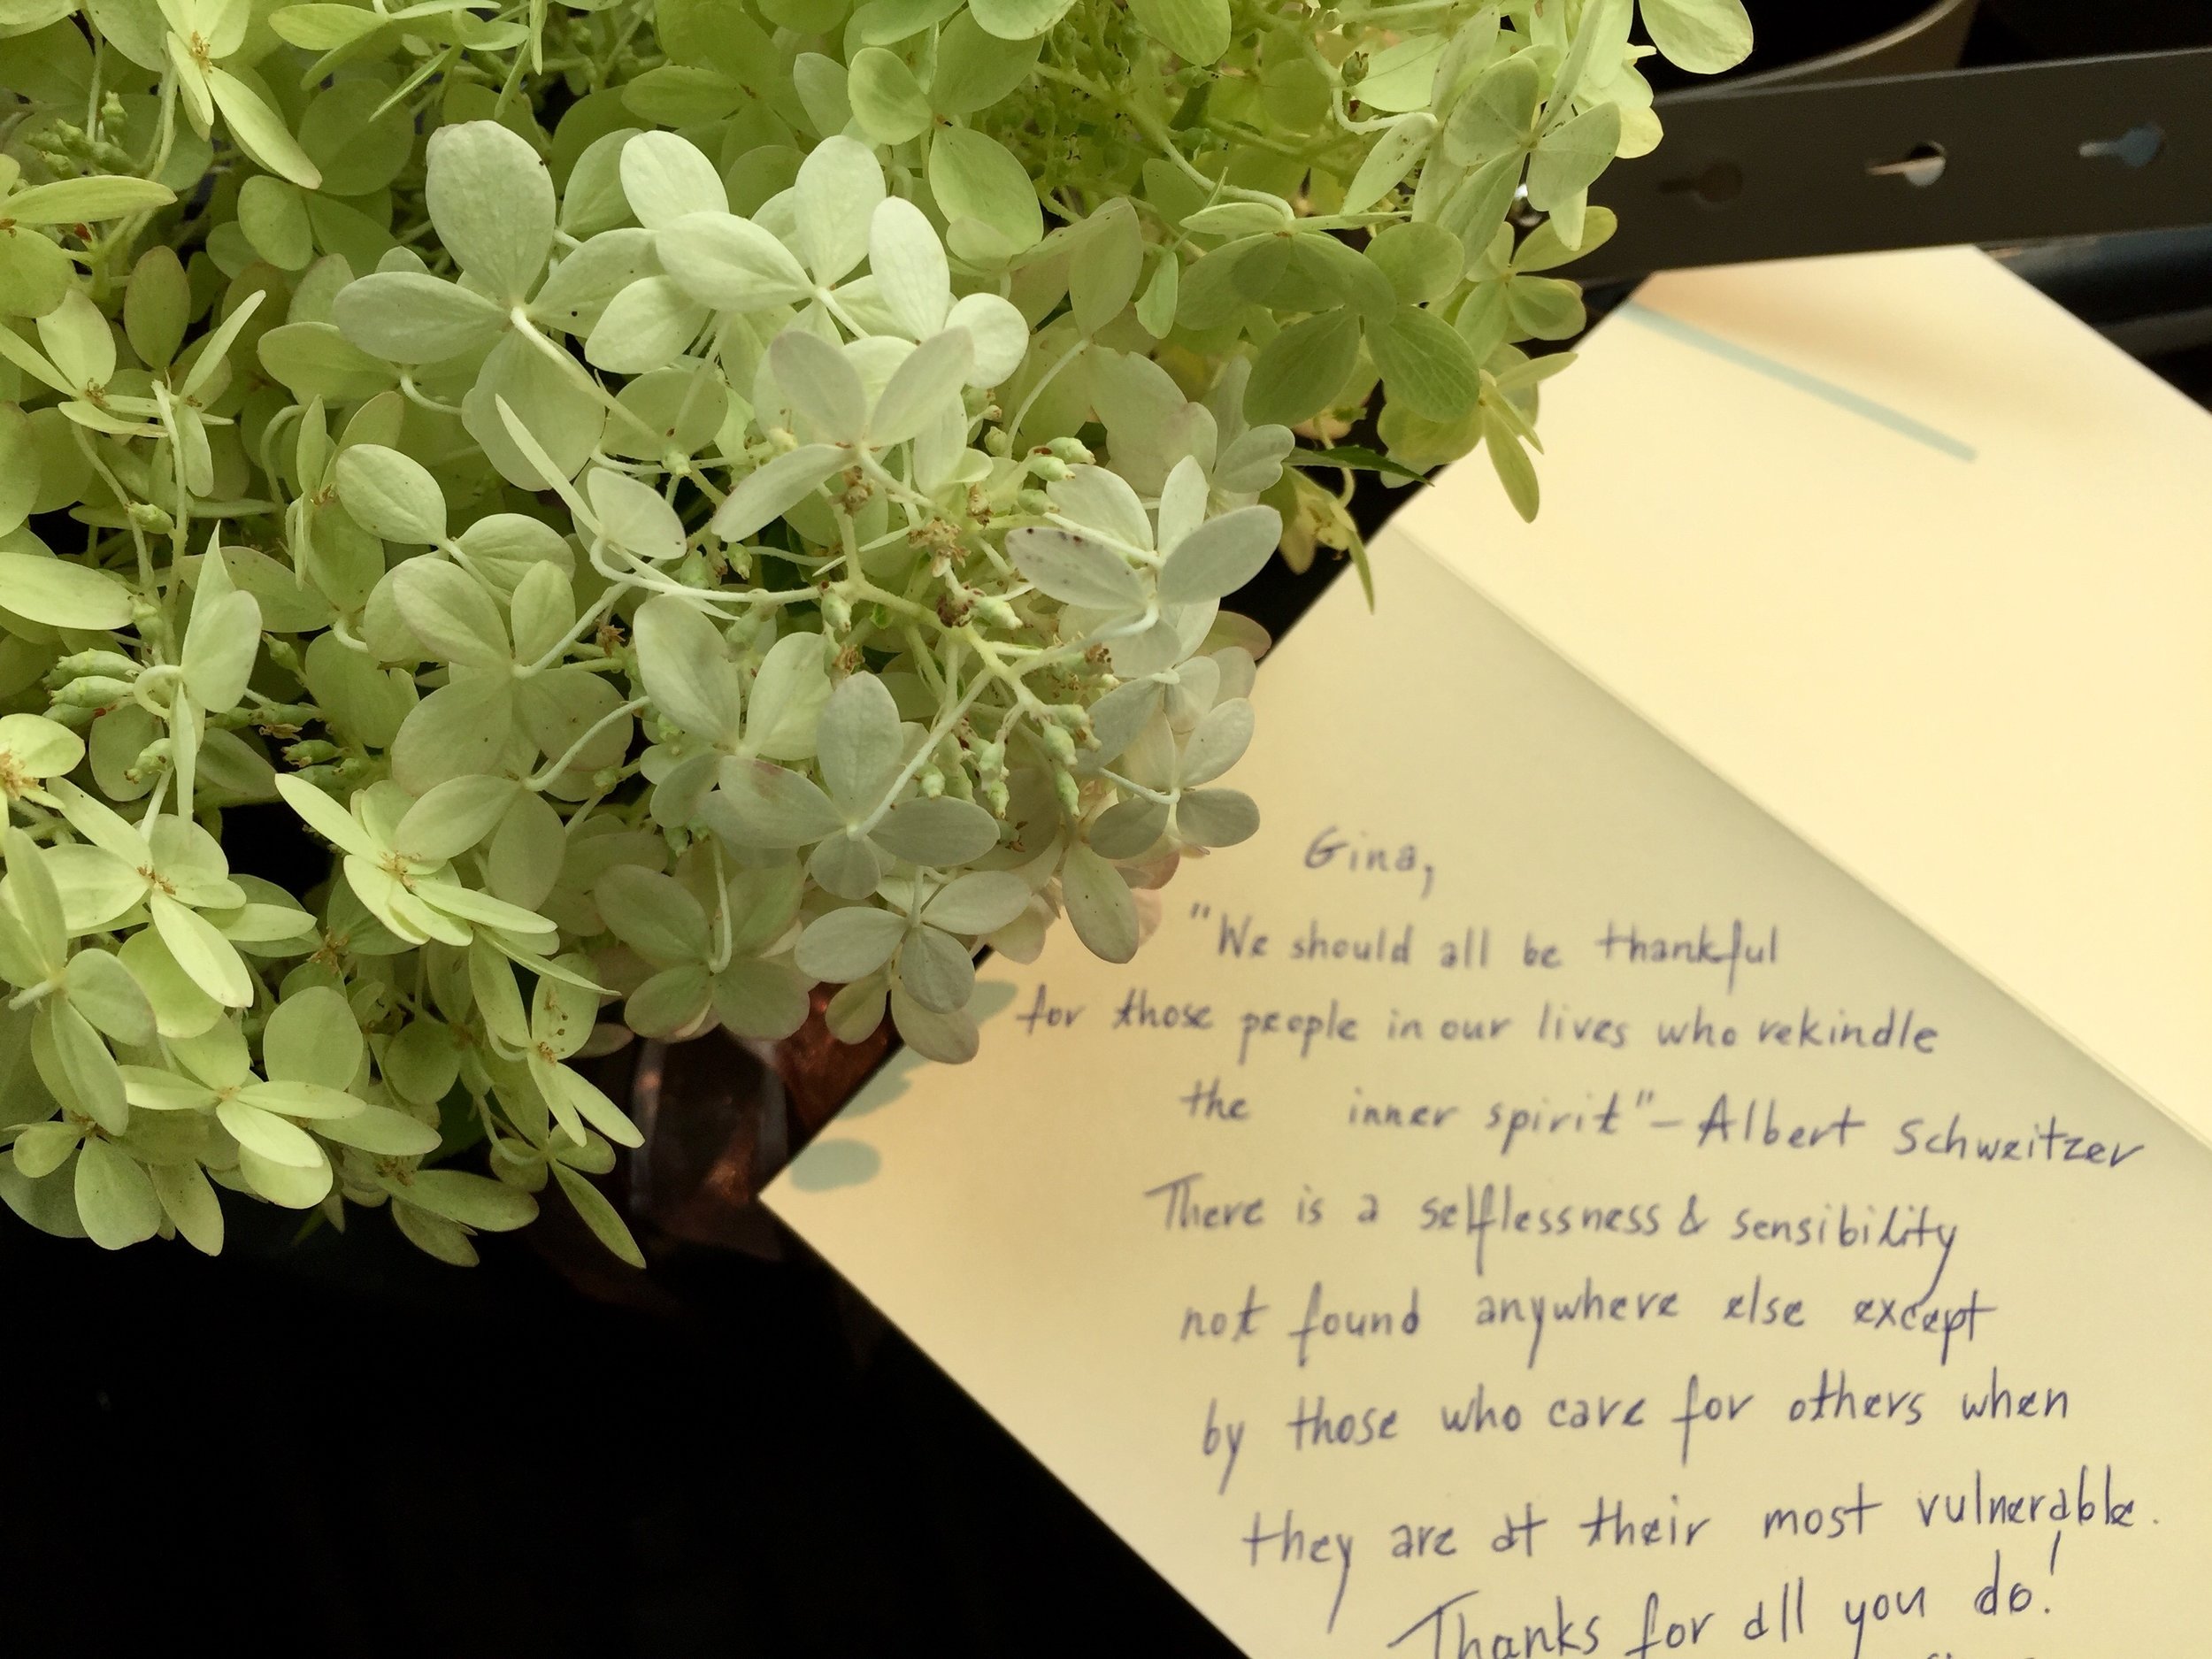 Gina,
"We should all be thankful
for those people in our lives who rekindle
the inner spirit" - Albert Schweitzer
There is a selflessness & sensibility
not found anywhere else except
by those who care for others when
they are at their most vulnerable.
Thanks for all you do!